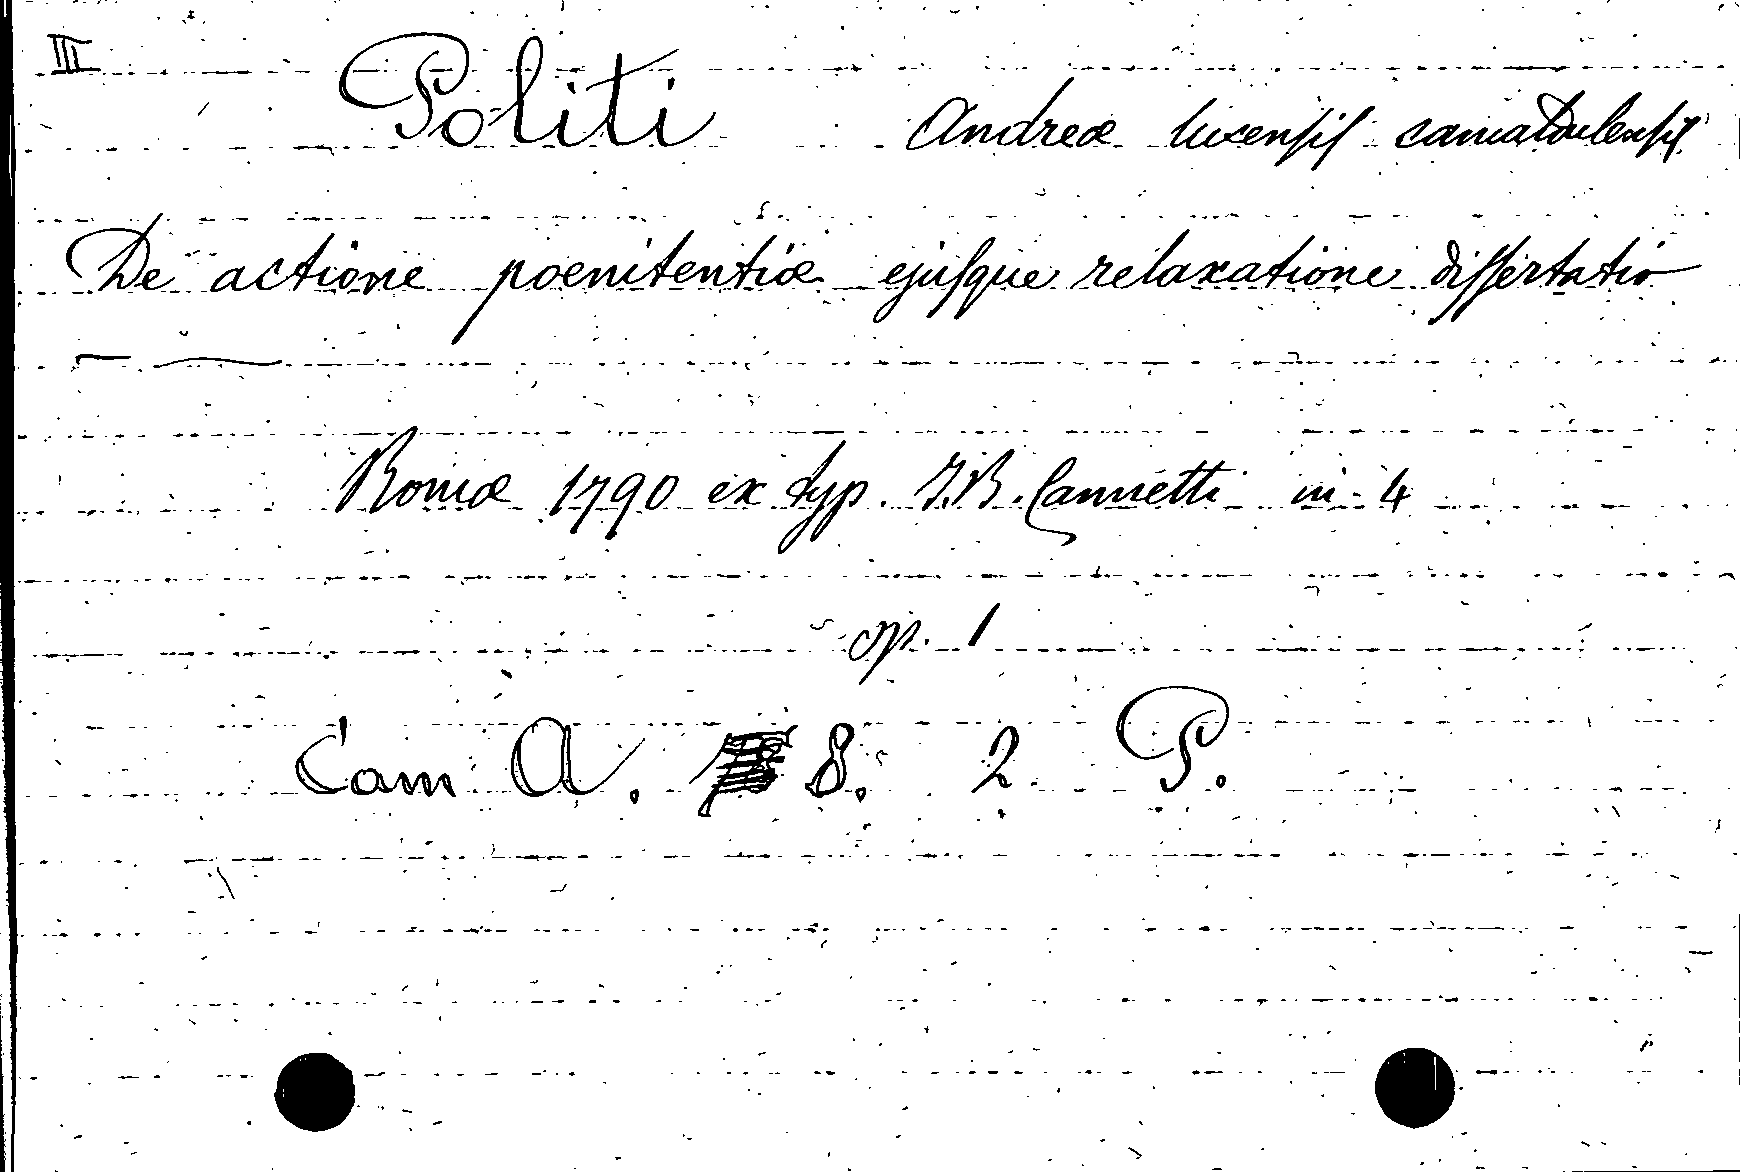 III Politi Andreæ lucensis camaldulensis
De actione poenitentiæ ejusque relaxatione dissertatio
Romæ 1790 ex typ. J.B. Cannetti in-4
op. 1
Cam A. 8. 2 P.